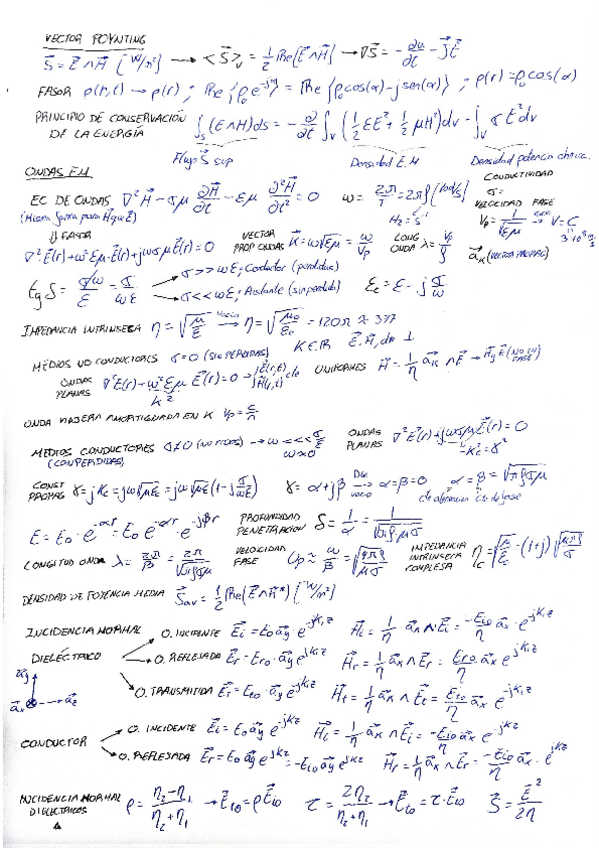 VECTOR POYNTING
S⃗ = E⃗ ∧ H⃗ [W/m²] → <S⃗>ᵥ = 1/2 Re{E⃗∧H⃗} → ∇S⃗ = -∂u/∂t - J⃗E⃗
FASOR ρ(r,t) → ρ(r) ; Re{ρ₀e^-jα} = Re{ρ₀cos(α)-jsen(α)} ; ρ(r)=ρ₀cos(α)
PRINCIPIO DE CONSERVACIÓN DE LA ENERGÍA ∫s (E∧H)ds = -∂/∂t ∫v (1/2 εE² + 1/2 μH²)dv - ∫v σE²dv
Flujo S⃗ sup Densidad E.M Densidad potencia óhmica.
ONDAS EM
CONDUCTIVIDAD σ=
EC DE ONDAS ∇²H⃗ - σμ ∂H⃗/∂t - εμ ∂²H⃗/∂t² = 0 ω = 2π/T = 2πf [rad/s]
(Misma forma para H que E) Hz = s⁻¹
VELOCIDAD FASE Vp = 1/√εμ → V=C 3·10⁸ m/s
⇓ FASOR
∇²E⃗(r)+ω²εμ·E⃗(r)+jωσμE⃗(r)=0 VECTOR PROP ONDAS K⃗=ω√εμ = ω/Vp LONG ONDA λ = Vp/f a⃗k (VECTOR PROPAG)
tg δ = σ/ωε σ>>ωε; Conductor (perdidas)
σ<<ωε; Aislante (sin perdida) εc = ε - j σ/ω
IMPEDANCIA INTRINSECA η = √μ/ε → η = √μ₀/ε₀ = 120π ≈ 377
K∈ℝ E⃗,H⃗, dir ⊥
MEDIOS NO CONDUCTORES σ=0 (SIN PERDIDAS)
ONDAS PLANAS ∇²E(r)+ω²εμ E⃗(r)=0 UNIFORMES H⃗ = 1/η a⃗k ∧ E⃗
k²
ONDA VIAJERA AMORTIGUADA EN K Vp = c/n
MEDIOS CONDUCTORES σ≠0 (CON PERDIDAS) ONDAS PLANAS ∇²E⃗(r)+jωσμE⃗(r)=0
-Kc² = γ²
CONST PROPAG γ=jKc=jω√μεc=jω√με(1-j σ/ωε) γ = α+jβ → α=β=0 α=β=√πfσμ
cte atenuacion cte de fase
E = E₀·e^-αr = E₀ e^-αr · e^-jβr PROFUNDIDAD PENETRACION δ = 1/α = 1/√πf·μσ
LONGITUD ONDA λ = 2π/β = 2π/√πfσμ VELOCIDAD FASE Vp ≈ ω/β = √4πf/μσ IMPEDANCIA INTRINSECA COMPLEJA ηc = √μ/εc = (1+j) √πfμ/σ
DENSIDAD DE POTENCIA MEDIA S⃗av = 1/2 Re{E⃗∧H⃗*} [W/m²]
INCIDENCIA NORMAL
DIELÉCTRICO
O. INCIDENTE E⃗i = E₀ a⃗y e^-jk₁z H⃗i = 1/η a⃗n∧E⃗i = -Ei₀/η a⃗x · e^-jk₁z
O. REFLEJADA E⃗r = Er₀·a⃗y e^jk₁z H⃗r = 1/η a⃗k∧E⃗r = Er₀/η a⃗x e^jk₁z
a⃗y a⃗x a⃗z
O. TRANSMITIDA E⃗t = Et₀ a⃗y e^-jk₁z H⃗t = 1/η a⃗k∧E⃗t = Et₀/η a⃗x e^-jk₁z
CONDUCTOR
O. INCIDENTE E⃗i = E₀ a⃗y e^-jkz H⃗i = 1/η a⃗k∧E⃗i = -Ei₀/η a⃗x e^-jkz
O. REFLEJADA E⃗r = E₀ a⃗y e^jkz = -Ei₀ a⃗y e^jkz H⃗r = 1/η a⃗k∧E⃗r = -Ei₀/η a⃗x · e^jkz
INCIDENCIA NORMAL DIELECTRICOS ρ = η₂-η₁/η₂+η₁ → E⃗r₀ = ρE⃗i₀ τ = 2η₂/η₂+η₁ → E⃗t₀ = τ·E⃗i₀ S⃗ = E⃗²/2η